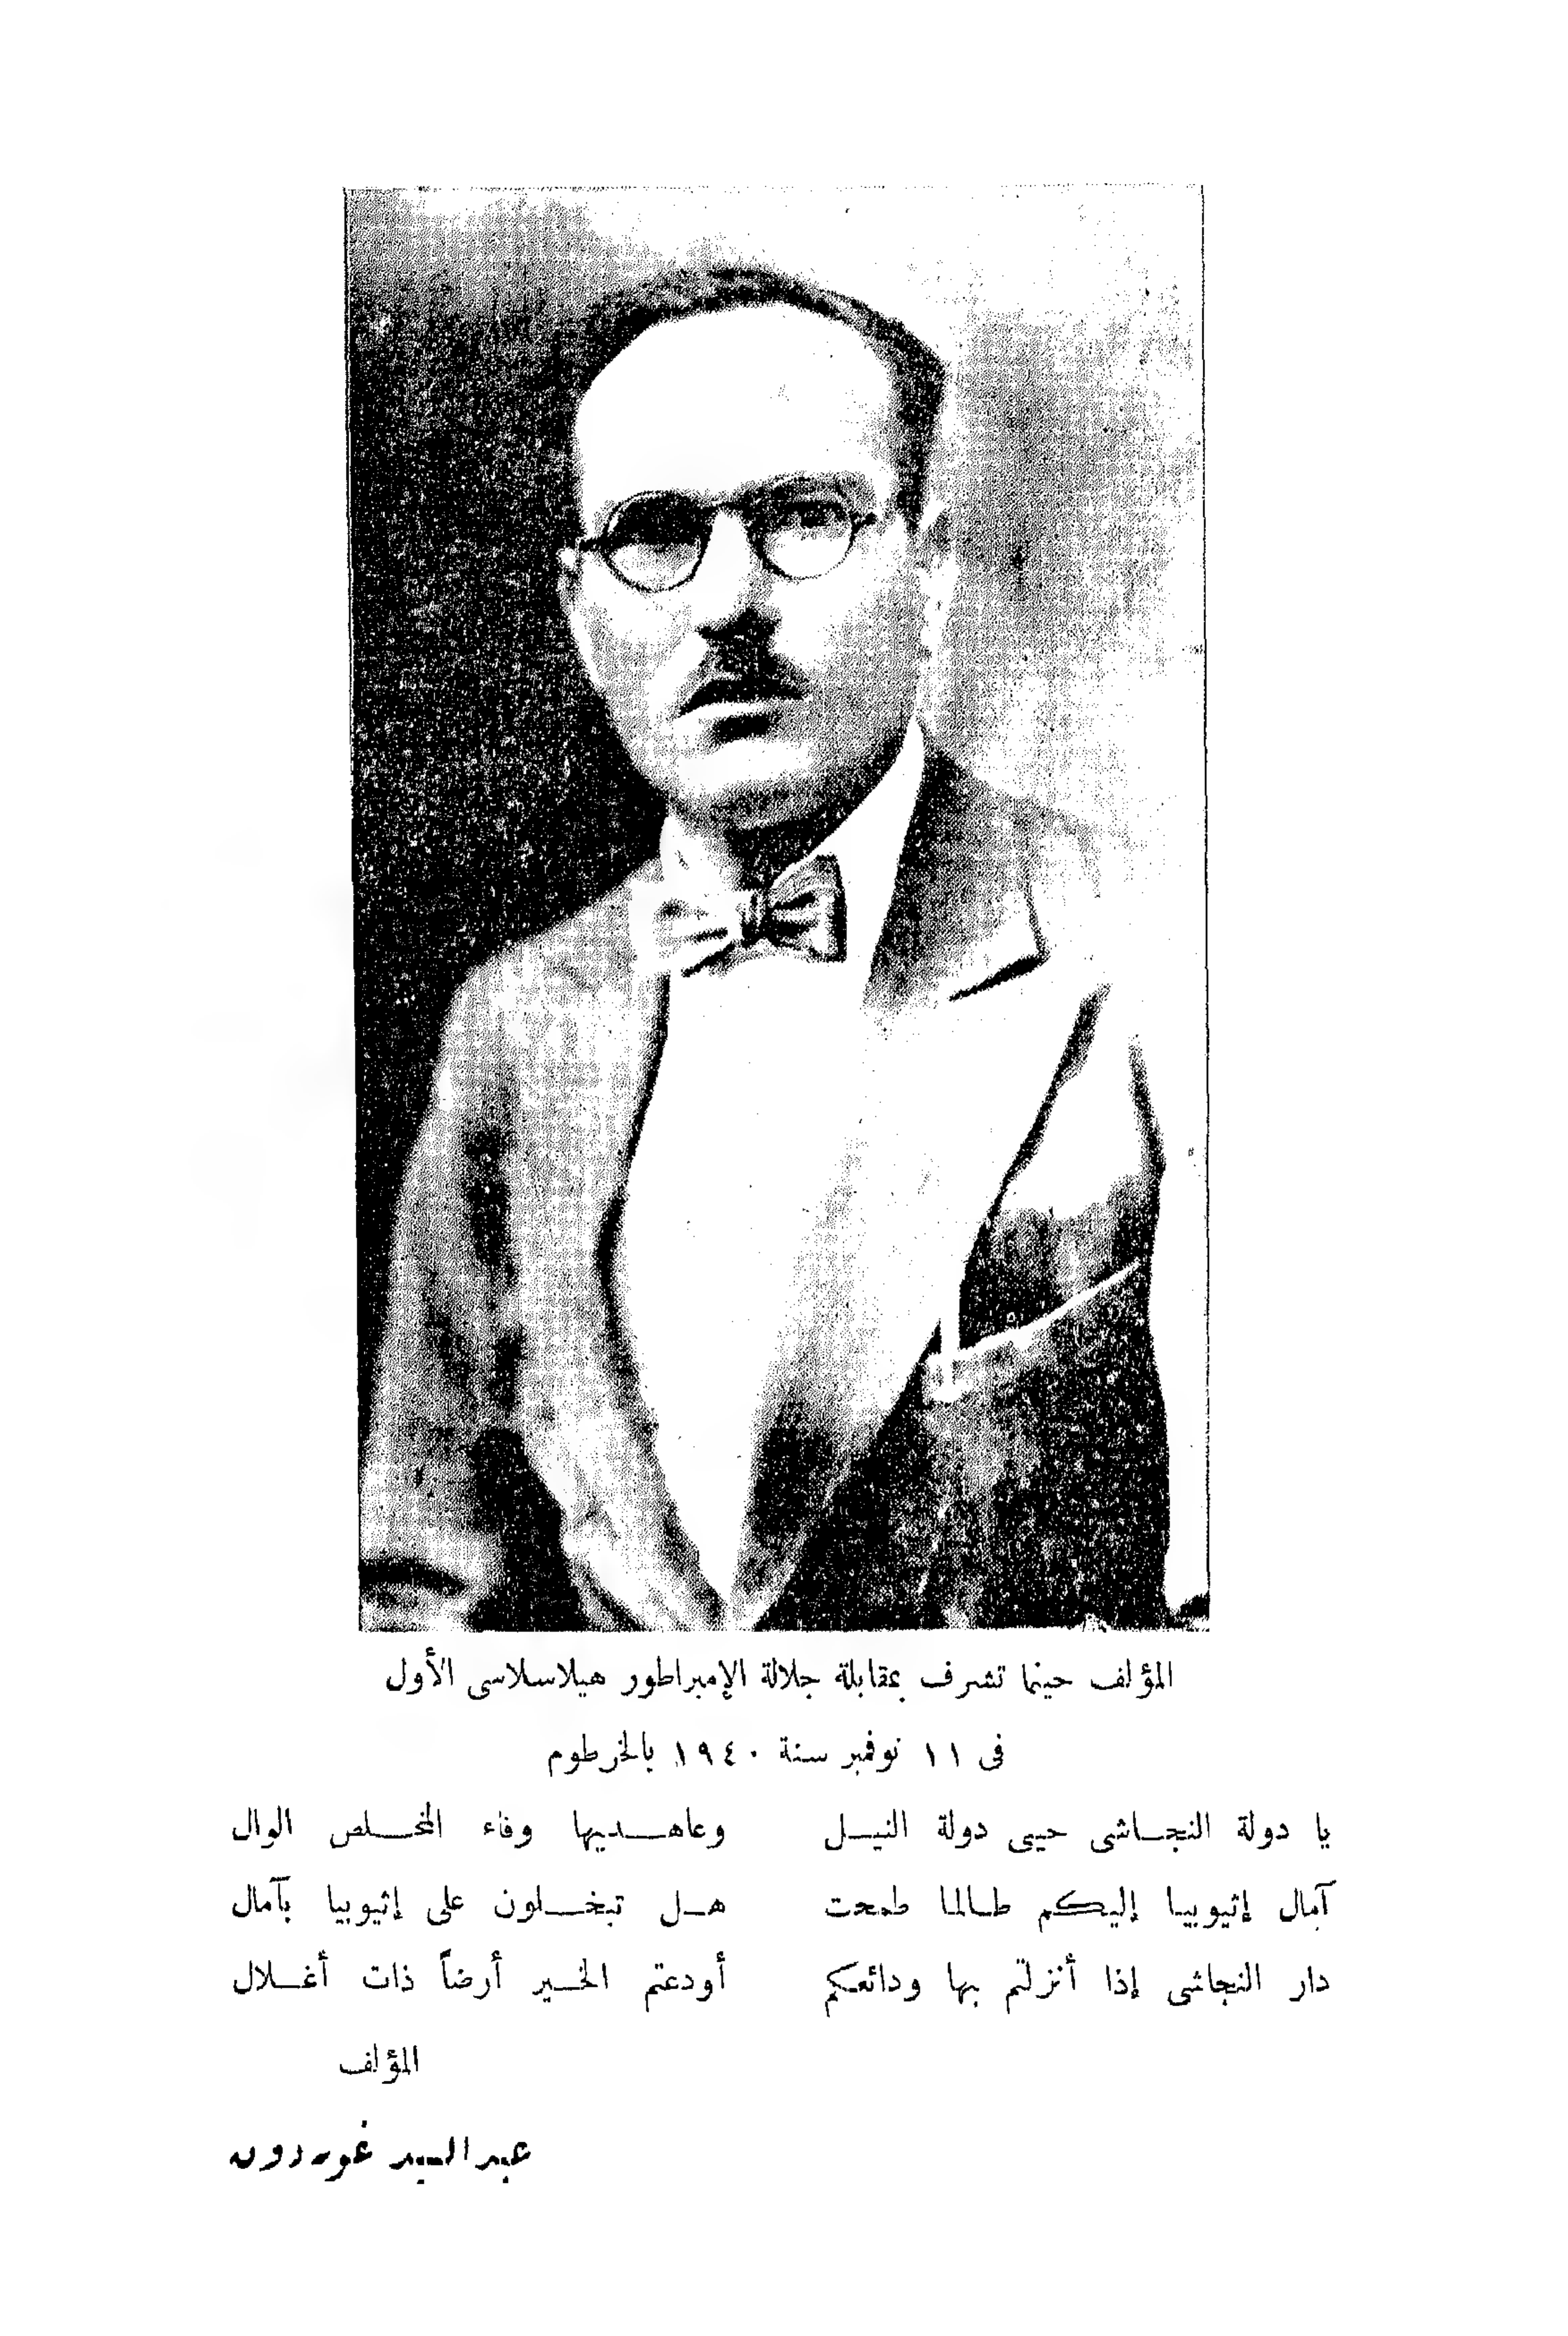 المؤلف حينما تشرف بمقابلة جلالة الإمبراطور هيلاسلاسى الأول
فى ١١ نوفمبر سنة ١٩٤٠ بالخرطوم
يا دولة النجـاشى حيى دولة النيـل وعاهـديها وفاء المخـلص الوال
آمال إثيوبيـا إليكم طـالما طمحت هـل تبخـلون على إثيوبيا بآمال
دار النجاشى إذا أنزلتم بها ودائعكم أودعتم الخـير أرضاً ذات أغـلال
المؤلف
عبد السيد